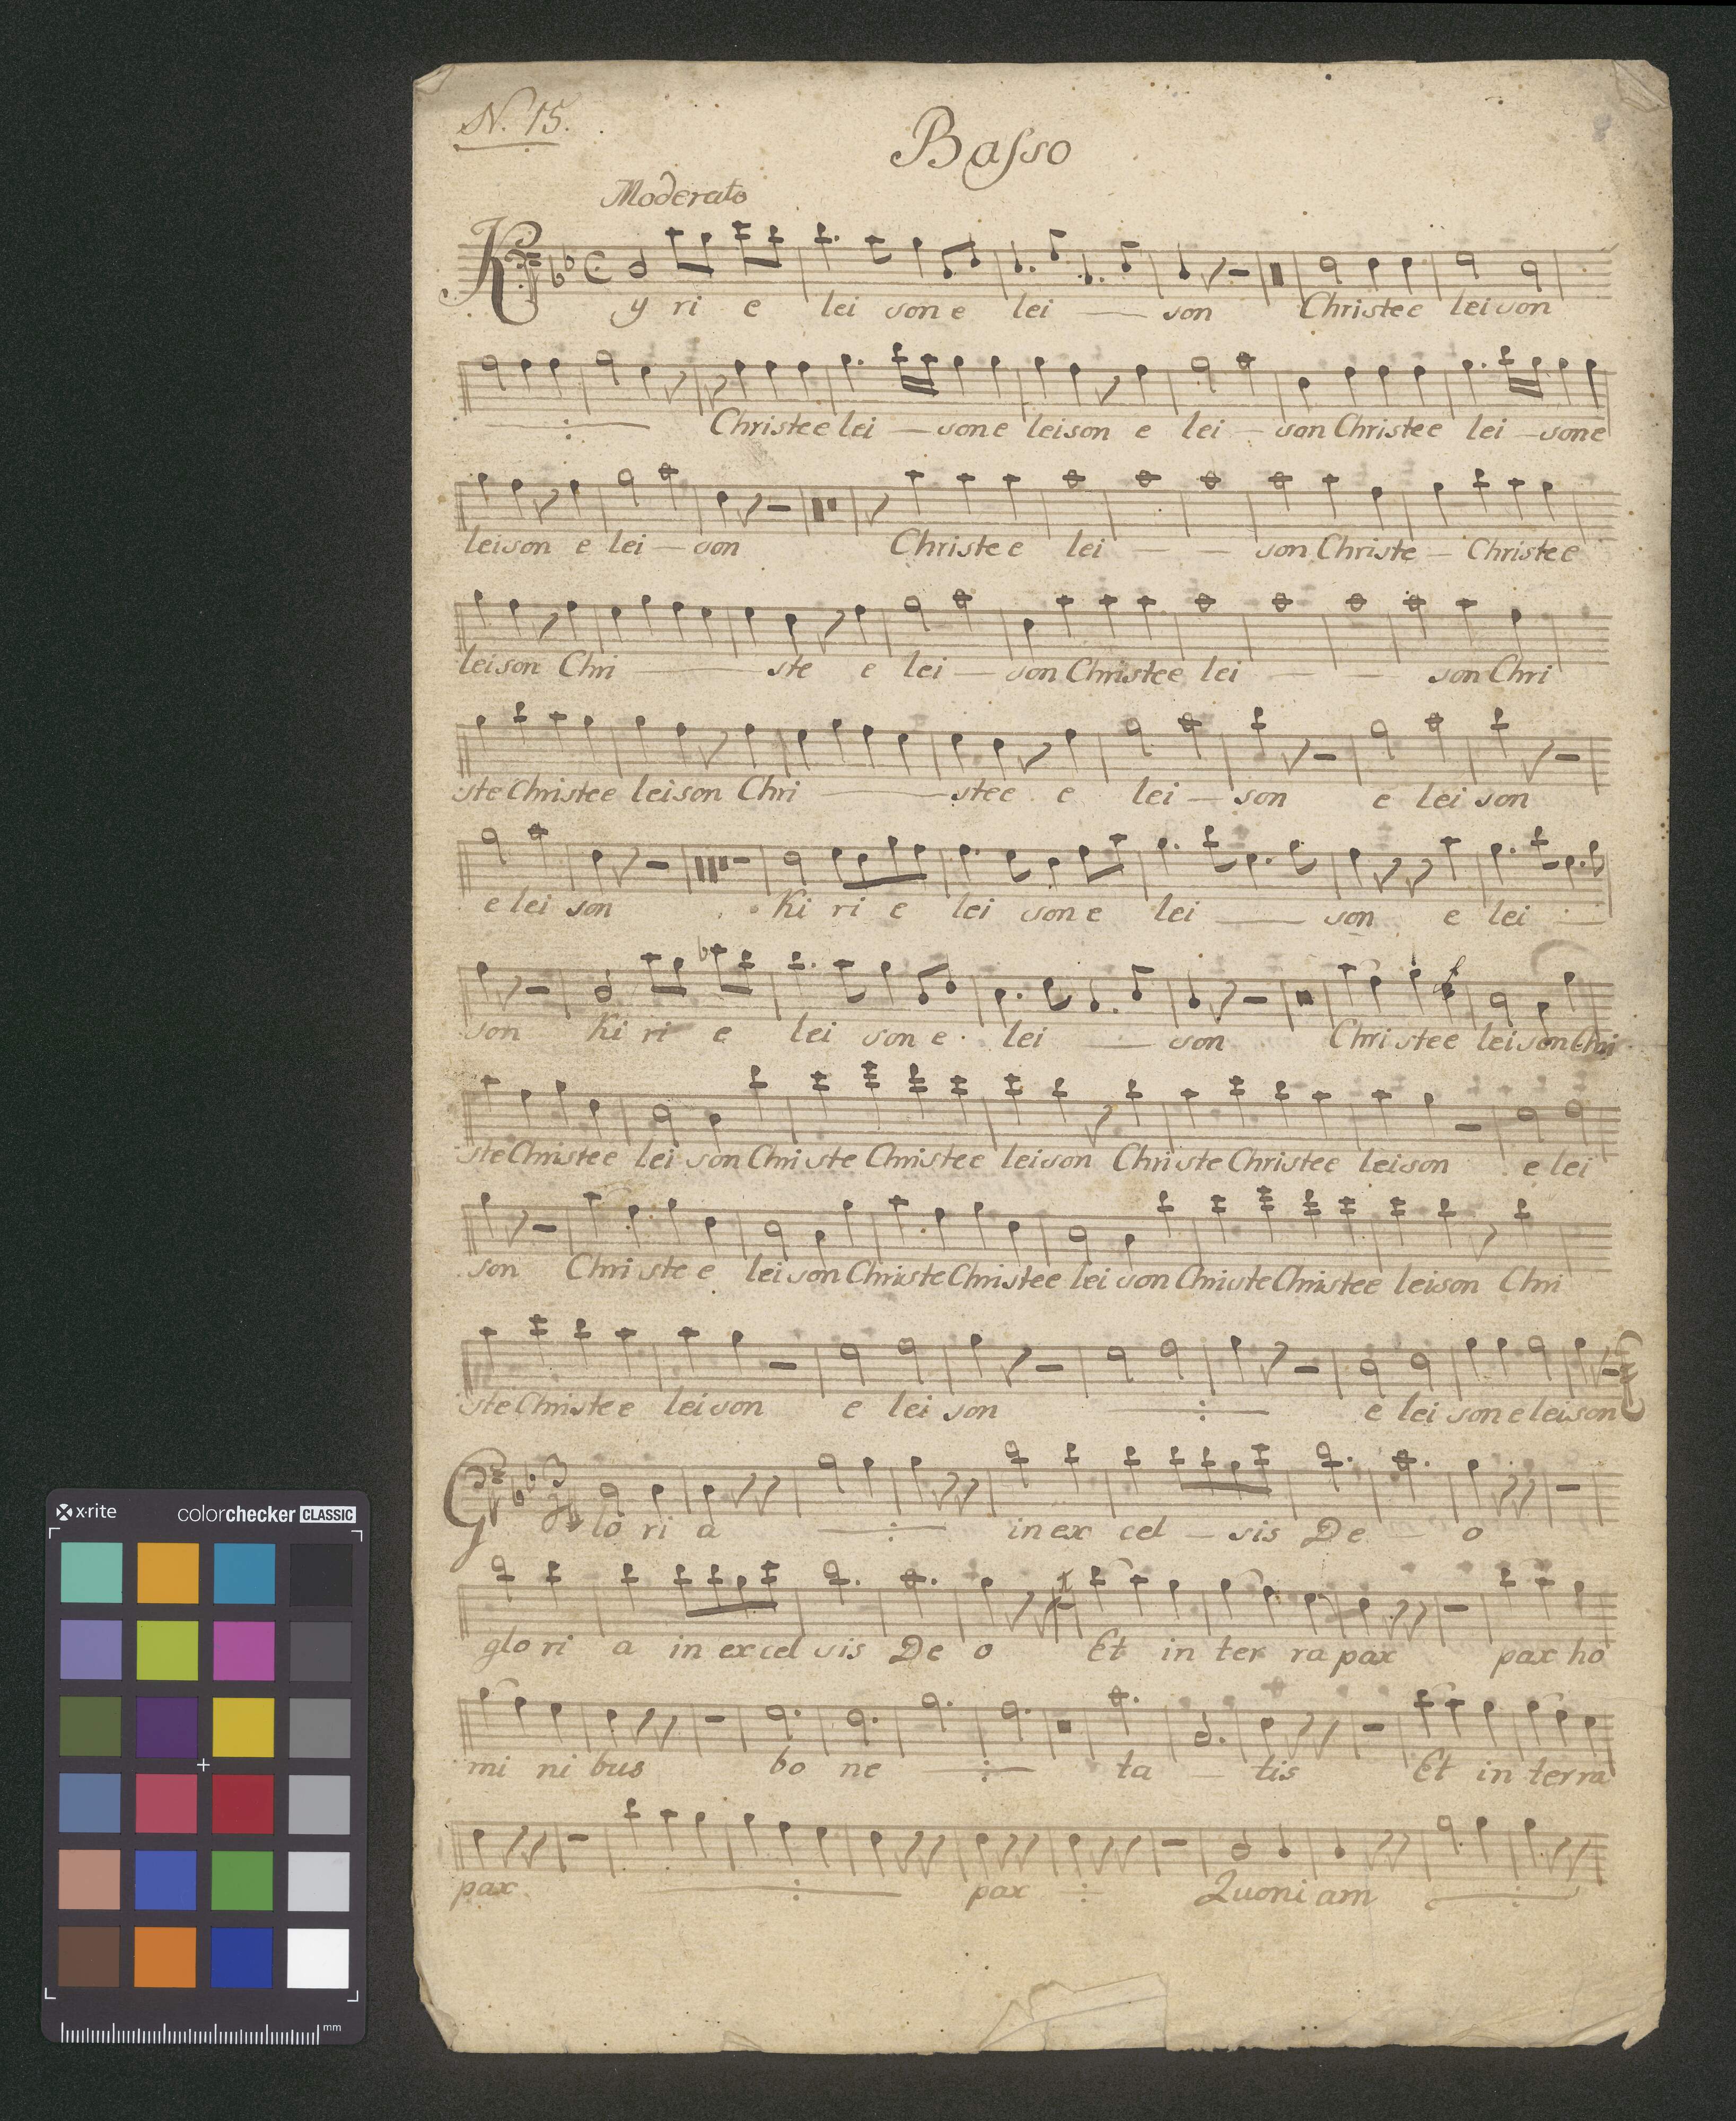 N. 15.
Basso
Moderato
Ky ri e lei son e lei — son Christe e lei son
—:— Christe e lei — son e leison e lei — son Christe e lei — son e
leison e lei — son Christe e lei — — son Christe — Christe e
leison Chri — ste e lei — son Christe e lei — — son Chri
ste Christe e leison Chri — stee e lei — son e lei son
e lei son Ki ri e lei son e lei — son e lei —
son Ki ri e lei son e lei — son Chri ste e lei son Chri
ste Christe e lei son Chri ste Christe e leison Chri ste Christe e leison e lei
son Chri ste e lei son Christe Christe e lei son Christe Christe e leison Chri
ste Christe e leison e lei son —:— e lei son e leison
Glo ri a —:— in ex cel — sis De — o
glo ri a in excel sis De o Et in ter ra pax pax ho
mi ni bus bo ne —:— ta — tis Et in terra
pax —:— pax :— Quoni am —:—
x·rite colorchecker CLASSIC
mm